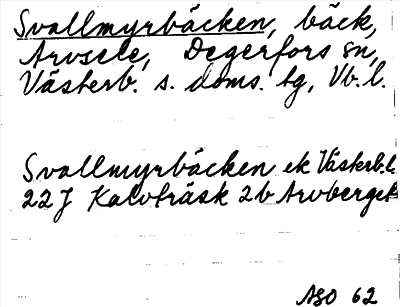 Svallmyrbäcken, bäck,
Arvsele, Degerfors sn,
Västerb. s. doms. tg, Vb. l.
Svallmyrbäcken ek Västerb. l.
22J Kalvträsk 2b Arvberget
ASO 62